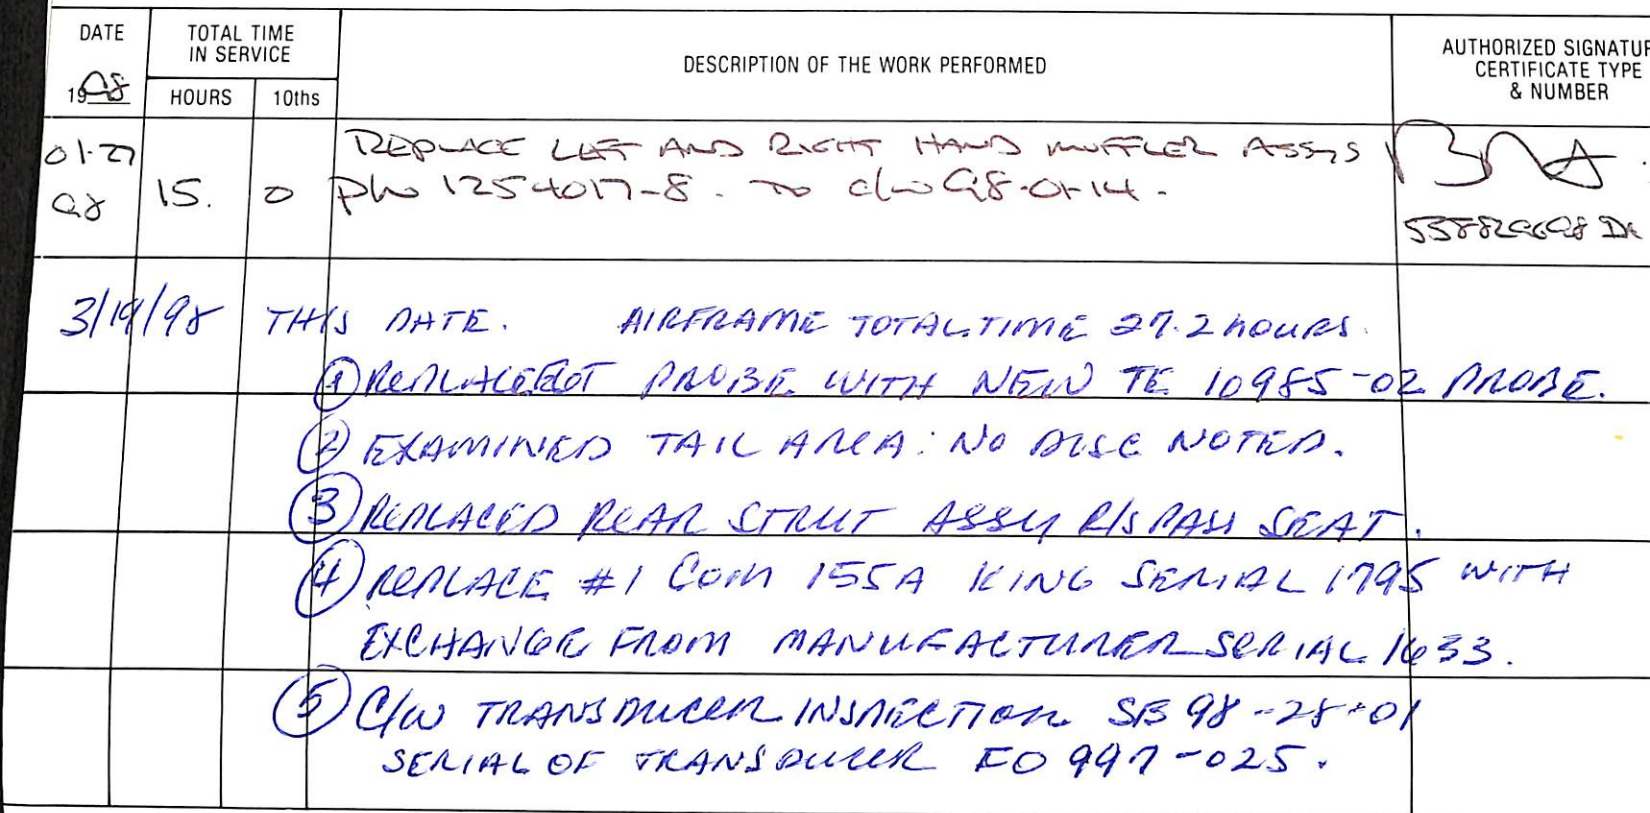 DATE
TOTAL TIME
IN SERVICE
DESCRIPTION OF THE WORK PERFORMED
AUTHORIZED SIGNATUR
CERTIFICATE TYPE
& NUMBER
1998
HOURS
10ths
01-27
98
15.
0
REPLACE LEFT AND RIGHT HAND MUFFLER ASSYS
p/w 1254017-8. TO c/w 98-01-14.
3/19/98 THIS DATE. AIRFRAME TOTAL TIME 27.2 HOURS.
① REPLACED PROBE WITH NEW TE 10985-02 PROBE.
② EXAMINED TAIL AREA: NO DISC NOTED.
③ REPLACED REAR STRUT ASSY R/S PASS SEAT.
④ REPLACE #1 COM 155A KING SERIAL 1795 WITH
EXCHANGE FROM MANUFACTURER SERIAL 1633.
⑤ C/W TRANSDUCER INSPECTION SB 98-28-01
SERIAL OF TRANSDUCER FO 997-025.